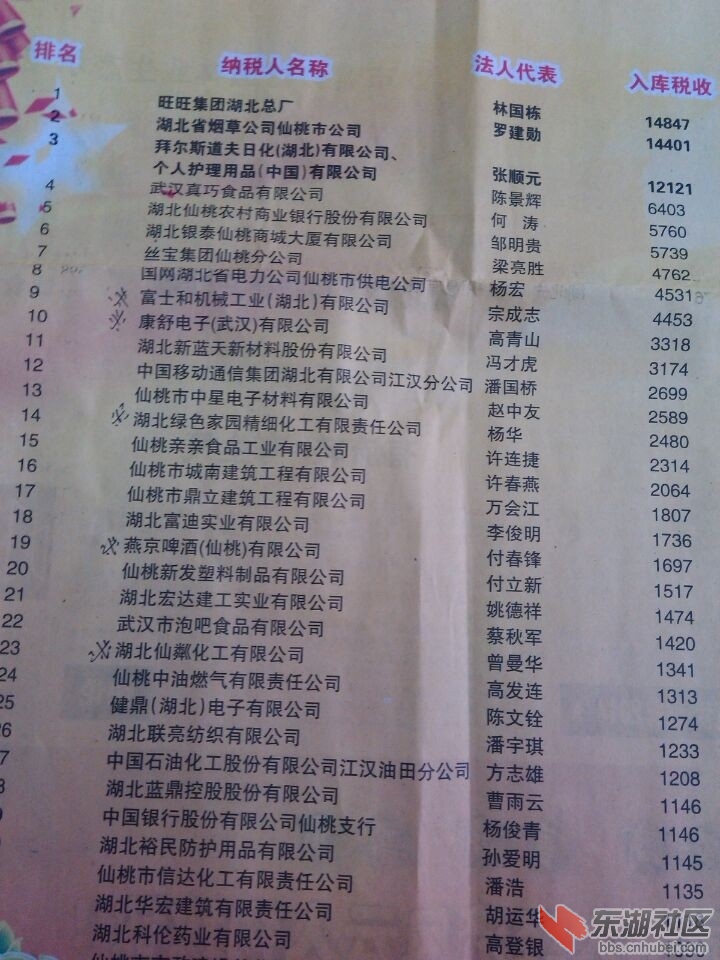 排名 纳税人名称 法人代表 入库税收
1 旺旺集团湖北总厂 林国栋 14847
2 湖北省烟草公司仙桃市公司 罗建勋 14401
3 拜尔斯道夫日化(湖北)有限公司、
个人护理用品(中国)有限公司 张顺元 12121
4 武汉真巧食品有限公司 陈景辉 6403
5 湖北仙桃农村商业银行股份有限公司 何涛 5760
6 湖北银泰仙桃商城大厦有限公司 邹明贵 5739
7 丝宝集团仙桃分公司 梁亮胜 4762
8 国网湖北省电力公司仙桃市供电公司 杨宏 4531
9 富士和机械工业(湖北)有限公司 宗成志 4453
10 康舒电子(武汉)有限公司 高青山 3318
11 湖北新蓝天新材料股份有限公司 冯才虎 3174
12 中国移动通信集团湖北有限公司江汉分公司 潘国桥 2699
13 仙桃市中星电子材料有限公司 赵中友 2589
14 湖北绿色家园精细化工有限责任公司 杨华 2480
15 仙桃亲亲食品工业有限公司 许连捷 2314
16 仙桃市城南建筑工程有限公司 许春燕 2064
17 仙桃市鼎立建筑工程有限公司 万会江 1807
18 湖北富迪实业有限公司 李俊明 1736
19 燕京啤酒(仙桃)有限公司 付春锋 1697
20 仙桃新发塑料制品有限公司 付立新 1517
21 湖北宏达建工实业有限公司 姚德祥 1474
22 武汉市泡吧食品有限公司 蔡秋军 1420
23 湖北仙粼化工有限公司 曾曼华 1341
24 仙桃中油燃气有限责任公司 高发连 1313
25 健鼎(湖北)电子有限公司 陈文铨 1274
6 湖北联亮纺织有限公司 潘宇琪 1233
7 中国石油化工股份有限公司江汉油田分公司 方志雄 1208
湖北蓝鼎控股股份有限公司 曹雨云 1146
中国银行股份有限公司仙桃支行 杨俊青 1146
湖北裕民防护用品有限公司 孙爱明 1145
仙桃市信达化工有限责任公司 潘浩 1135
湖北华宏建筑有限责任公司 胡运华
湖北科伦药业有限公司 高登银
东湖社区
bbs.cnhubei.com